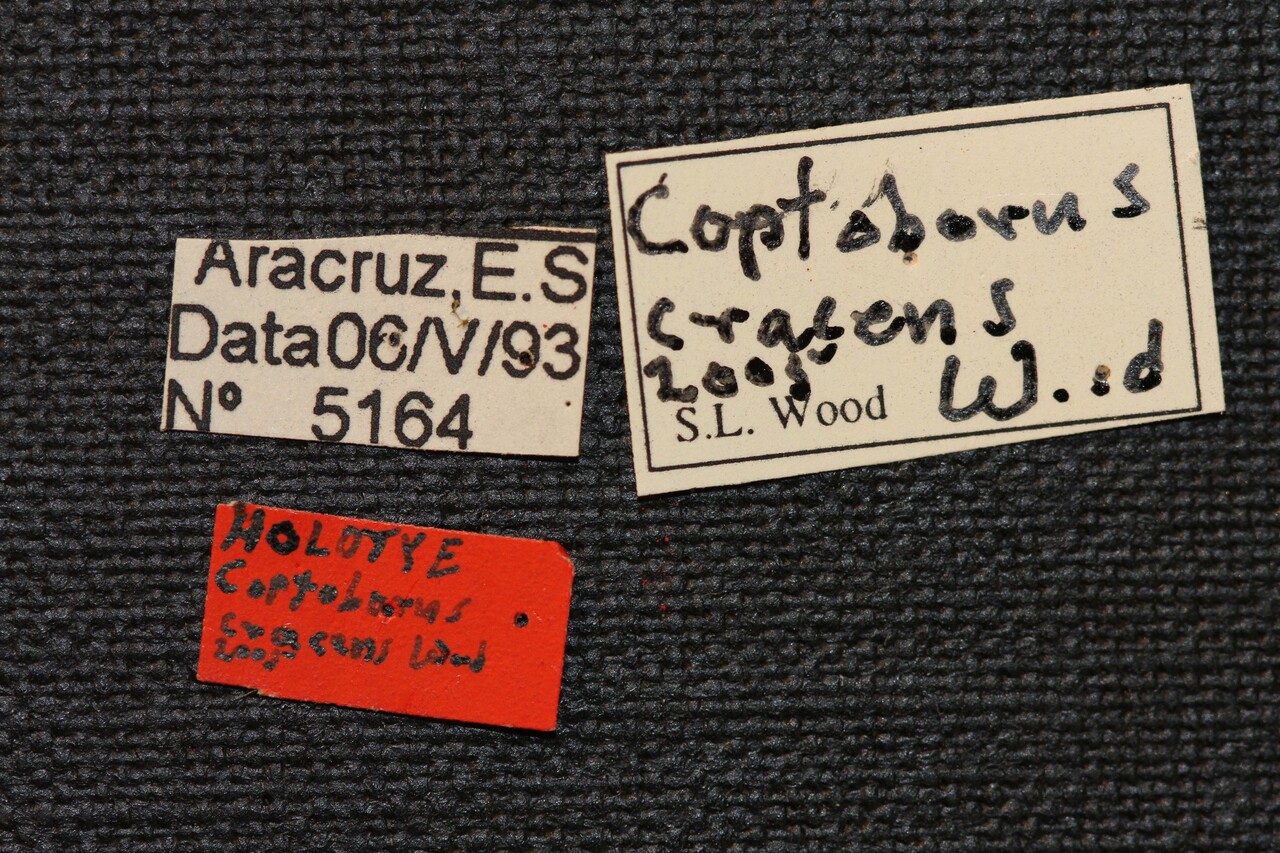 Aracruz, E.S
Data 06/V/93
Nº 5164
Coptoborus
cracens
2005 Wood
S.L. Wood
HOLOTYE
Coptoborus
cracens Wood
2005